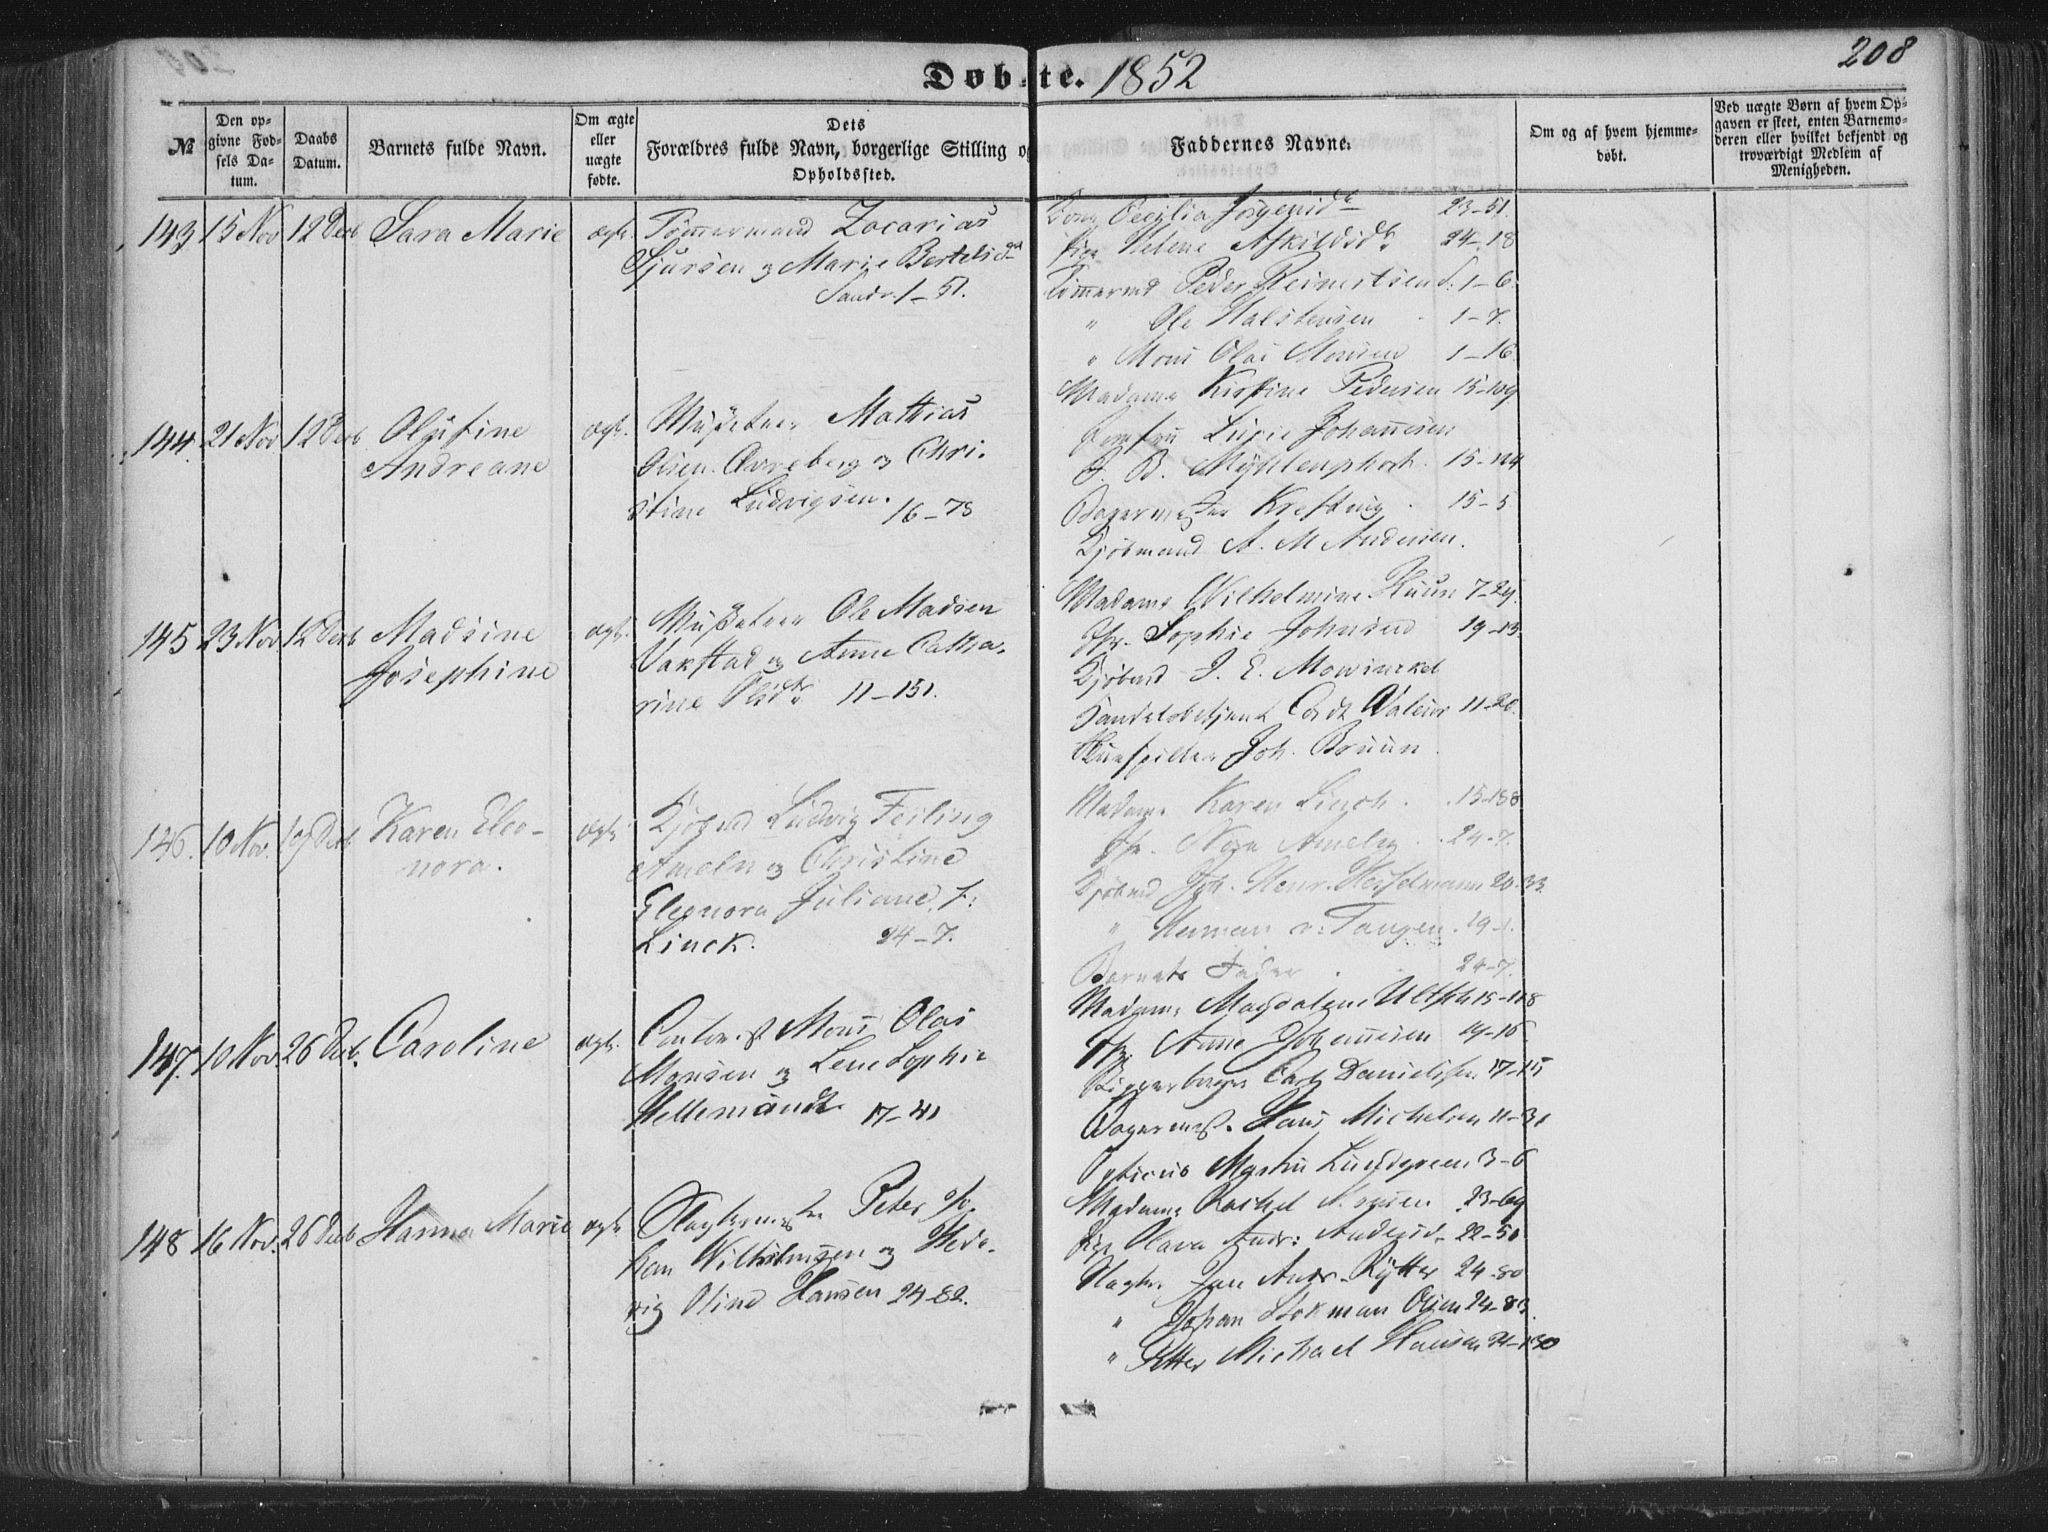 208
Døbte. 1852
№
Den opgivne Fødsels Datum.
Daabs Datum.
Barnets fulde Navn.
Om ægte eller uægte fødte.
Dets Forældres fulde Navn, borgerlige Stilling og Opholdssted.
Faddernes Navne.
Om og af hvem hjemmedøbt.
Ved uægte Børn af hvem Opgaven er skeet, enten Barnemoderen eller hvilket bekjendt og troværdigt Medlem af Menigheden.
143 15 Nov 12 Decb Sara Marie ægt. Tømmermand Zacarias
Sjursen og Marie Bertelsd
Sandv. 1-51.
Kone Cecylia Jørgensd 23-51.
Pige Helene Askildsd 24-18
Tømmermd Peder Reinertsen S. 1-6.
" Ole Halstensen 1-7.
" Mons Olai Monsen 1-16.
144 21 Nov 12 Decb Olufine
Andreane
ægt. Mathias
Olsen og Chri-
stine Ludvigsen. 16-73
Madame Kirstine Pedersen 15-109
Jomfru Johannesen
J. B. 15-124
Bagermester Krefting 15-5
Kjøbmand A. M. Andersen.
145 23 Nov 12 Decb Madsine
Josephine
ægt. Ole Madsen
Vakstad og Anne Catha-
rine Olsdtr 11-151.
Madame Wilhelmine 7-29.
Jfr. Sophie Johnsen 19-13.
Kjøbmd J. E. Mowinckel
Handelsbetjent 11-20.
Skuespiller Joh. Bruun.
146. 10 Nov. 19 Decb Karen Eleo-
nora.
ægt. Kjøbmd Ludvig Feiling
Ameln og Christine
Eleonora Juliane f:
Linck. 24-7.
Madame Karen Linck. 15-188
Jfr. Ameln 24-7.
Kjøbmd Joh. Henr. 20-33
" Herman v: Tangen. 19-1.
Barnets Fader 24-7.
147. 10 Nov. 26 Decb. Caroline ægt. Contorist Mons Olai
Monsen og Lene Sophie
Hellemandt 17-41
Madame Magdalene 15-118
Jfr. Anne Johannesen 19-16
Carl Danielsen 17-15
Bagermest. Hans Michelsen 11-31
Opticus Martin Lundgreen 3-6
148 16 Nov. 26 Decb Hanna Marie ægt. Slagtermester Peter Jo-
han Wilhelmsen og Hede-
vig Oline Hansen 24-82.
Madame Rachel 23-69
Pige Olava Andr: 22-50
Slagter Jan Andr. Rytter 24-80
" Johan Stokman Olsen 24-83.
" Petter Michael Hansen 24-130